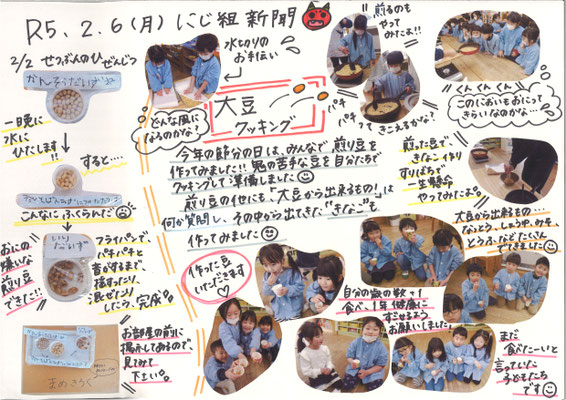 R5. 2. 6 (月) にじ組 新聞
2/2 せつぶんのひ ぜんじつ
かんそうだいず
一晩に
水に
ひたします!!
すると‥‥
こんなにふくらんだ
おにの
嫌いな
煎り豆
できた!!
いりだいず
フライパンで、
パチパチと
音がするまで、
揺すったり
混ぜたり
したら、完成
お部屋の前に
掲示してあるので、
見てみて
下さい。
水切りの
お手伝い
どんな風に
なるのかな?
大豆
クッキング
煎るのも
やって
みたよ!!
パチ
パチ
って きこえるかな?
くん くん くん
このにおいをおにって
きらいなのかな‥
今年の節分の日は、みんなで煎り豆を
作ってみました!! 鬼の苦手な豆を自分たちで
クッキングして準備しました
煎り豆の他にも、「大豆から出来るもの!」は
何か質問し、その中から出てきた"きなこ"も
作ってみました
煎った豆で
きなこ作り
すりばちで
一生懸命
やってみたよ。
大豆から出来るもの‥
なっとう、しょうゆ、みそ、
とうふなどたくさん
でてきました
作った豆
いただきます
自分の歳の数+1
食べ、1年健康に
すごせるよう
お願いしました
まだ
食べたーいと
言っていた
子どもたち
です